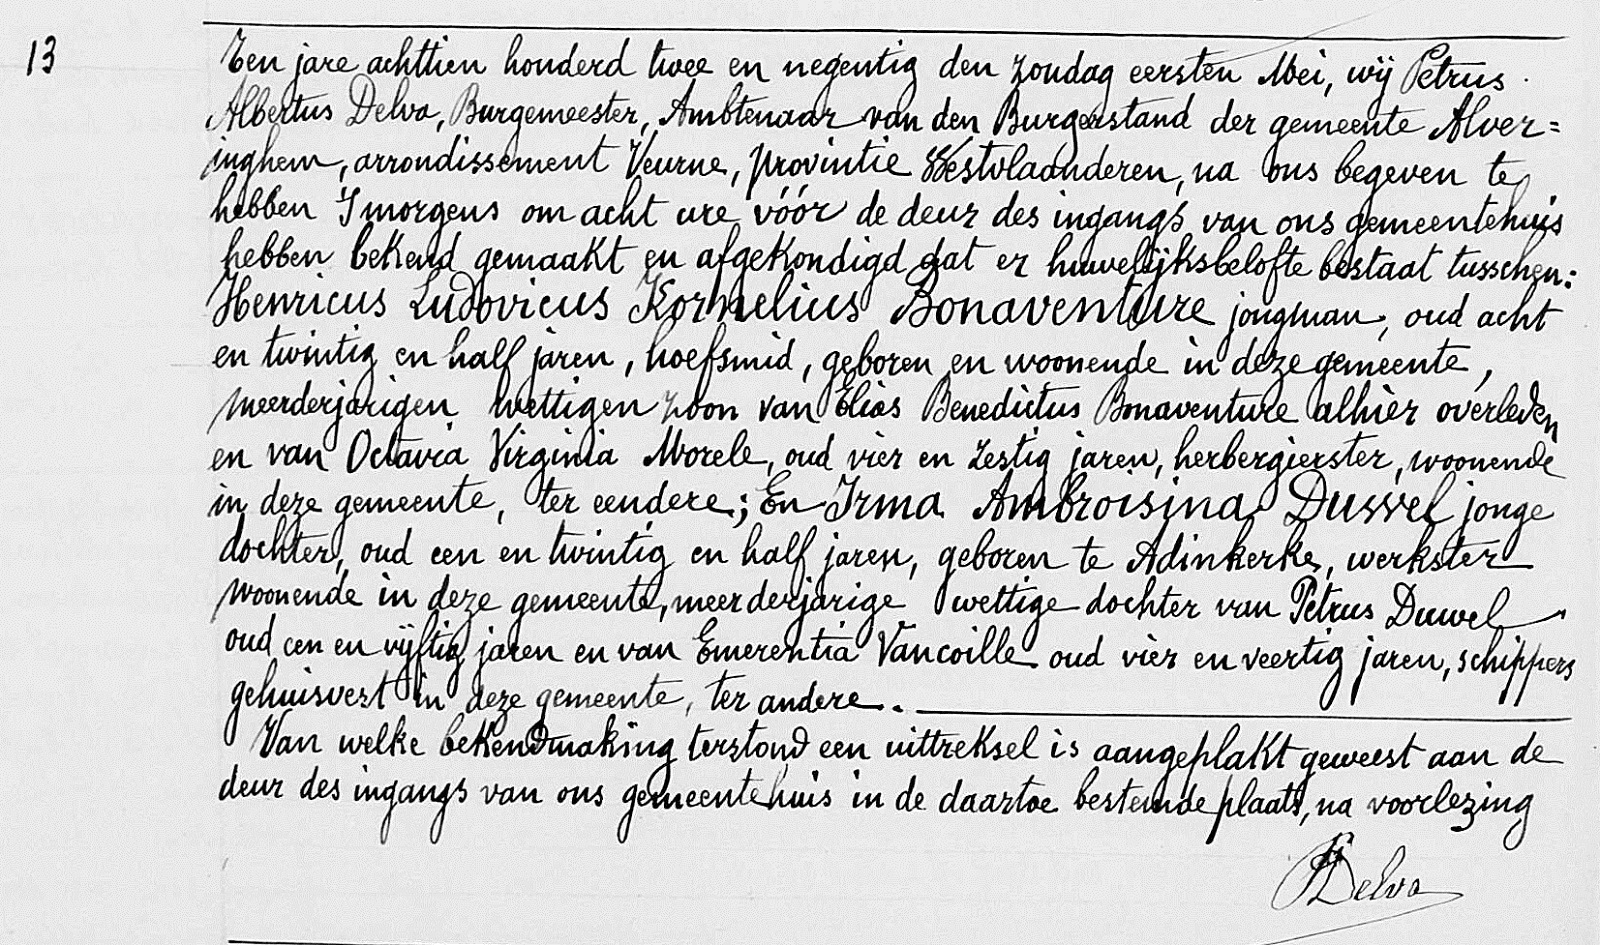 13
Ten jare achttien honderd twee en negentig den zondag eersten Mei, wij Petrus
Albertus Delva, Burgemeester, Ambtenaar van den Burgerstand der gemeente Alver=
inghem, arrondissement Veurne, provintie Westvlaanderen, na ons begeven te
hebben 's morgens om acht ure vóór de deur des ingangs van ons gemeentehuis
hebben bekend gemaakt en afgekondigd dat er huwelijksbelofte bestaat tusschen:
Henricus Ludovicus Kornelius Bonaventure jongman, oud acht
en twintig en half jaren, hoefsmid, geboren en woonende in deze gemeente,
meerderjarigen wettigen zoon van Elias Benedictus Bonaventure alhier overleden
en van Octavia Virginia Morele, oud vier en zestig jaren, herbergierster, woonende
in deze gemeente, ter eendere; En Irma Ambroisina Duwel jonge
dochter, oud een en twintig en half jaren, geboren te Adinkerke, werkster
woonende in deze gemeente, meerderjarige wettige dochter van Petrus Duwel
oud een en vijftig jaren en van Emerentia Vancoille oud vier en veertig jaren, schippers
gehuisvest in deze gemeente, ter andere.
Van welke bekendmaking terstond een uittreksel is aangeplakt geweest aan de
deur des ingangs van ons gemeentehuis in de daartoe bestemde plaats, na voorlezing
PADelva